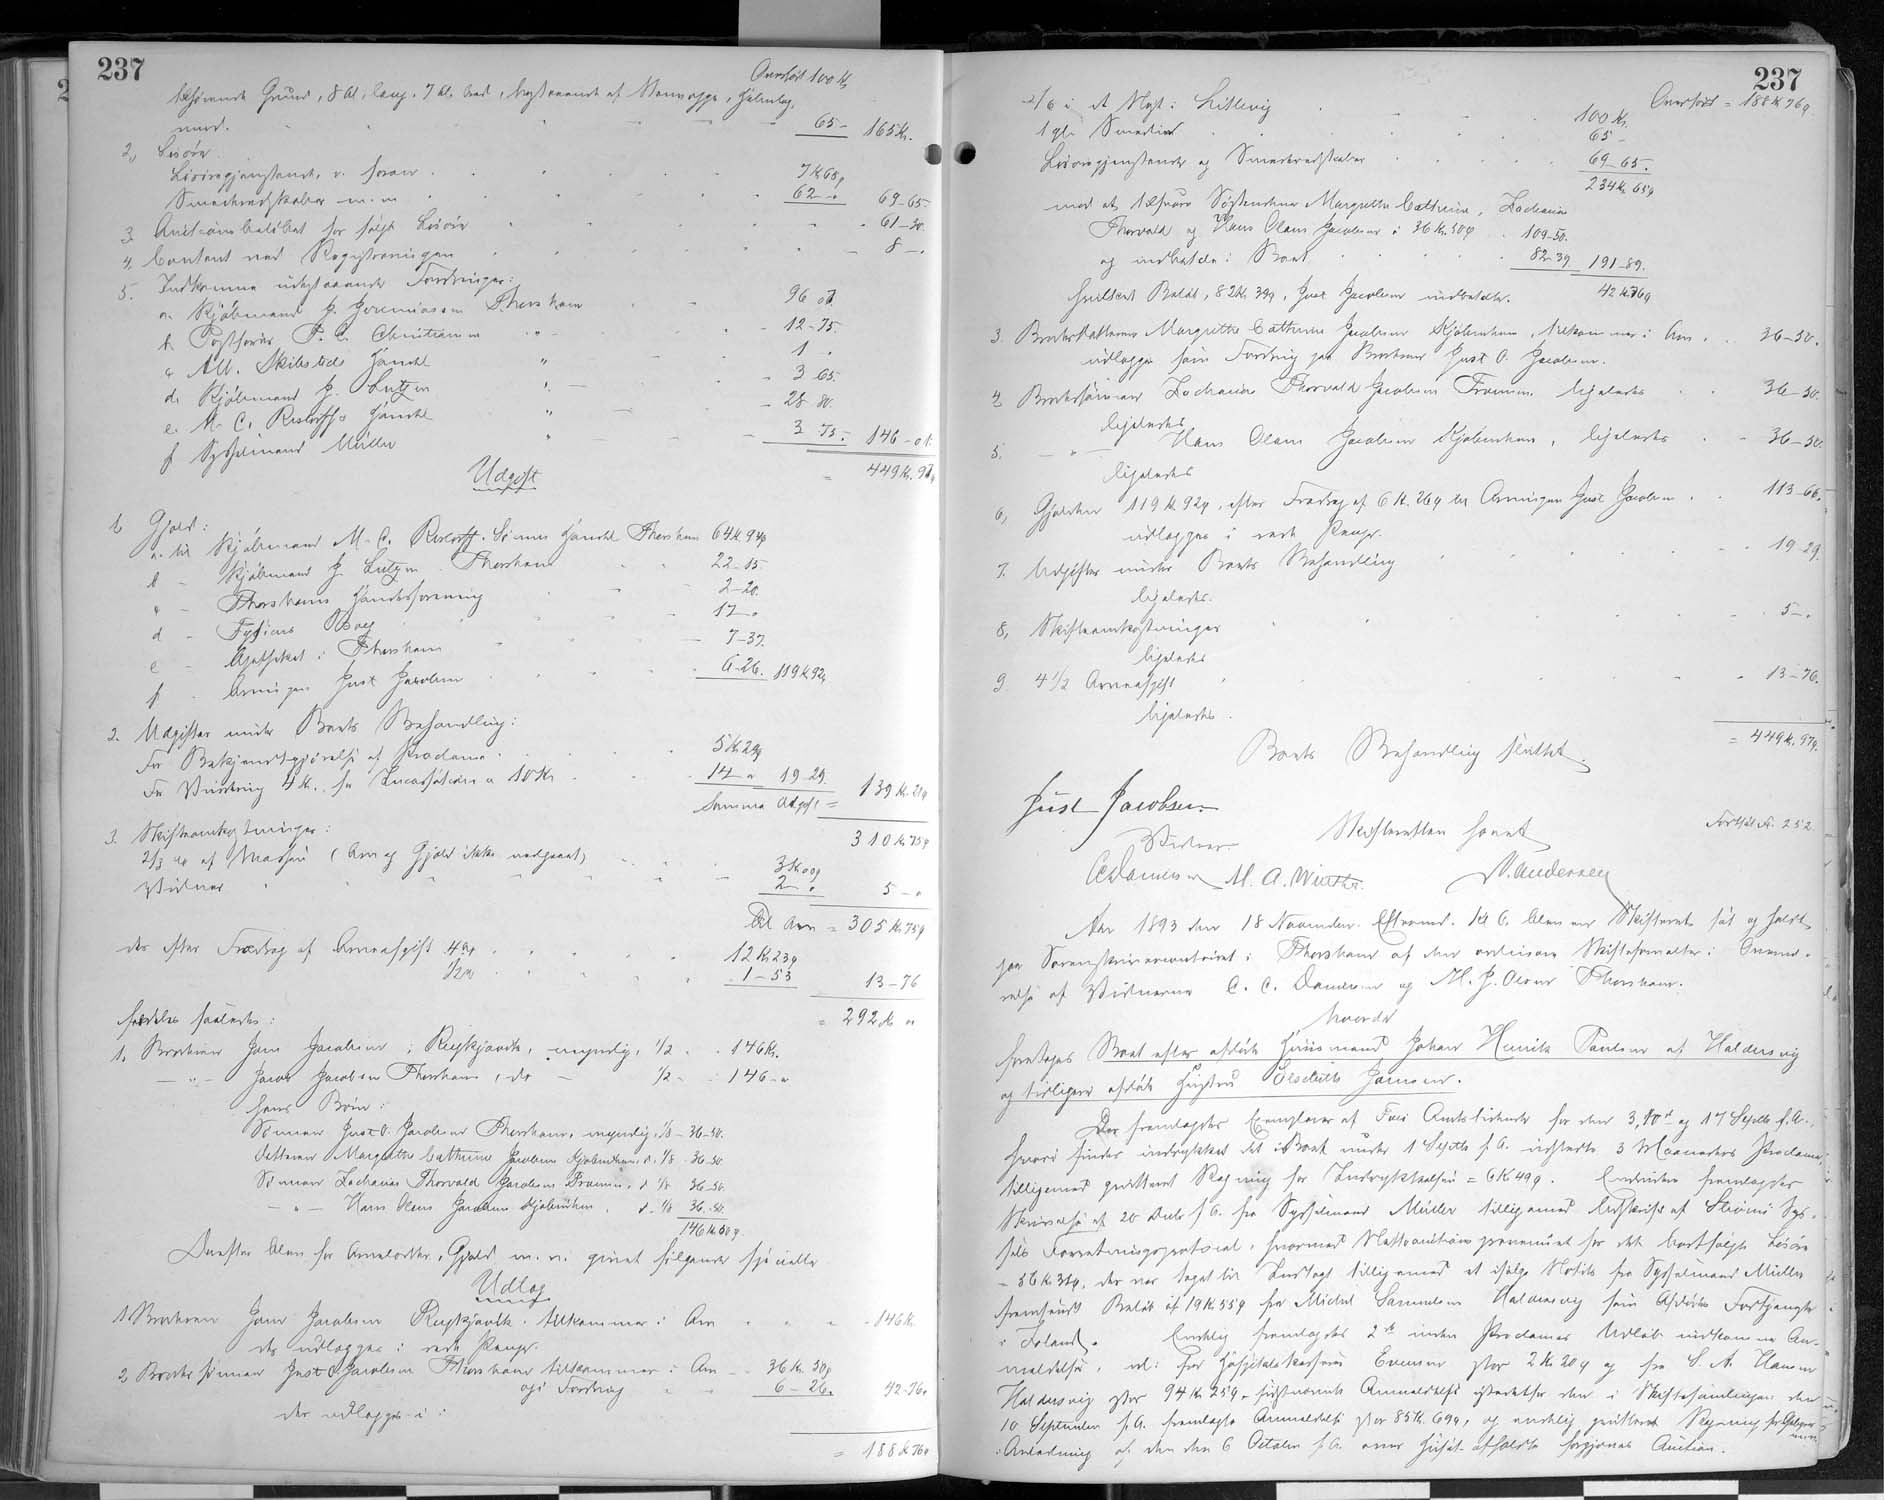 237
Overført 100 Kr
tilhørende Grund, 8 Al. lang, 7 Al. bred, bestaaende af
med. 65 - 165 Kr.
2, Løsøre
Løsøregjenstande, v. foran 7 K 65 ø
Smederedskaber m. m 62 - " 69 - 65
3, Auctionsbeløbet for solgt Løsøre 61 - 30.
4, Contant ved Registreringen 8 - "
5. Indkomne udestaaende Fordringer:
a. Kjøbmand J. Jeremiassen Thorshavn 96 01.
b. Postfører P. C. Christiansen " - 12 - 75.
c. Alb. Skibsteds Handel " 1 "
d. Kjøbmand J. Lützen " - 3 65.
e. M. C. Restorffs Handel " - 28 80.
f Sysselmand Müller " - 3 75. 146 - 01.
= 449 Kr. 97 ø
Udgift
1. Gjæld:
a. til Kjøbmand M. C. Restorff & Sønners Handel Thorshavn 64 K 94 ø
b - Kjøbmand J. Lützen Thorshavn 22 - 15
c - Thorshavns Handelsforening 2 - 20.
d - Fysicus Boeg 17 - "
e - Apotheket i Thorshavn 7 - 37.
f - Arvingen Just Jacobsen 6 - 26. 119 K 92 ø
2. Udgifter under Boets Behandling:
For Bekjendtgjørelse af Proclama 5 K 29 ø
For Vurdering 4 Kr. for Incassation a 10 Kr 14 " 19 - 29
Summa Udgift = 139 Kr. 21 ø
310 Kr 75 ø
3. Skifteomkostninger:
2/3 % af Massen (Arv og Gjæld ikke undgaaet) 3 K 00 ø
Vidner 2 - " 5 - "
Til Arv = 305 Kr 75 ø
der efter Fradrag af Arveafgift 4% 12 Kr 23 ø
1/2% 1 - 53 13 - 76
= 292 Kr "
fordeles saaledes:
1. Broderen Jens Jacobsen i Reykjavik, myndig, 1/2 146 Kr.
- " - Jacob Jacobsen Thorshavn, do - 1/2 - 146 - "
hans Børn:
Sønnen Just O. Jacobsen Thorshavn, myndig, 1/8 - 36 - 50.
Datteren Margrethe Cathrine Jacobsen Kjøbenhavn, d. 1/8 36 - 50
Sønnen Zacharias Thorvald Jacobsen, d 1/8 36 - 50.
- " - Hans Olaus Jacobsen Kjøbenhavn, d. 1/8 36 - 50.
146 K 00 ø.
Derefter blev for Arvelodder, Gjæld m. v. givet følgende specielle
Udlæg
1. Broderen Jens Jacobsen Reykjavik tilkommer i Arv 146 Kr.
der udlægges i rede Penge.
2 Brodersønnen Just O. Jacobsen Thorshavn tilkommer i Arv 36 Kr. 50 ø
og i Fordring 6 - 26. 42 - 76.
der udlægges i:
= 188 K 76 ø
237
Overført = 188 K 76 ø
100 Kr.
65 -
Løsøregjenstande og Smederedskaber 69 - 65.
234 K 65 ø
mod at tilsvare Søskendene Margrethe Cathrine, Zacharias
Thorvald og Hans Olaus Jacobsen à 36 Kr. 50 ø 109 - 50.
og indbetale i Boet 82 - 39 191 - 89.
hvilket Beløb, 82 Kr. 39 ø, Just Jacobsen indbetalte. 42 K 76 ø
3. Broderdatteren Margrethe Cathrine Jacobsen Kjøbenhavn, tilkommer i Arv 36 - 50.
udlægges som Fordring paa Broderen Just O. Jacobsen.
4 Brodersønnen Zacharias Thorvald Jacobsen ligeledes 36 - 50.
ligeledes
5. - " - Hans Olaus Jacobsen Kjøbenhavn, ligeledes 36 - 50.
ligeledes
6, Gjælden 119 K 92 ø, efter Fradrag af 6 K. 26 ø til Arvingen Just Jacobsen 113 - 66.
udlægges i rede Penge.
7. Udgifter under Boets Behandling 19 - 29.
ligeledes.
8, Skifteomkostninger 5 - "
ligeledes
9. 4 1/2 Arveafgift 13 - 76.
ligeledes.
= 449 K. 97 ø.
Boets Behandling sluttet.
Just Jacobsen
Skifteretten hævet Fortsat Fo. 252.
Vidner
C C Danielsen M. A. Winther. N. Andersen
Aar 1893 den 18 November Eftermd. Kl 6 blev en Skifteret sat og holdt
paa Sorenskrivercontoiret i Thorshavn af den ordinære Skifteforvalter i Overvæ-
relse af Vidnerne C. C. Danielsen og M. J. Olsen Thorshavn.
hvorda
foretoges Boet efter afdøde Huusmand Johan Henrik Poulsen af Haldersvig
og tidligere afdøde Hustru Elsebeth Jansdr.
Der fremlagdes Exemplarer af Færø Amtstidende for den 3, 10de og 17 Septb. f. A.,
hvori findes indrykket det i Boet under 1 Septb. f. A. udstedte 3 Maaneders Proclama
tilligemed qvitteret Regning for Indrykkelsen = 6 K 49 ø. Endvidere fremlagdes
Skrivelse af 20 Octb. f. A. fra Sysselmand Müller tilligemed Udskrift af Strømø Sys-
sels Forretningsprotocol, hvormed Nettoauctionsprovenuet for det bortsolgte Løsøre
- 36 K 34 ø, der var taget til Indtægt tilligemed et ifølge Notits fra Sysselmand Müller
fremsendt Beløb af 19 K 55 ø fra Michel Samuelsen Haldersvig som Afdødes Fortjeneste
i Island. Endelig fremlagdes 2de inden Proclamas Udløb indkomne An-
meldelser, nl: fra Hospitalskasserer Evensen stor 2 Kr 20 ø og fra S. A. Hansen
Haldersvig stor 94 K 25 ø, sidstnævnte Anmeldelse istedetfor den i Skiftesamlingen den
10 September f. A. fremlagte Anmeldelse stor 85 K. 69 ø, og endelig qvitteret Regning
i Anledning af den den 6 October f. A. over Huset afholdte forgjæves Auction.